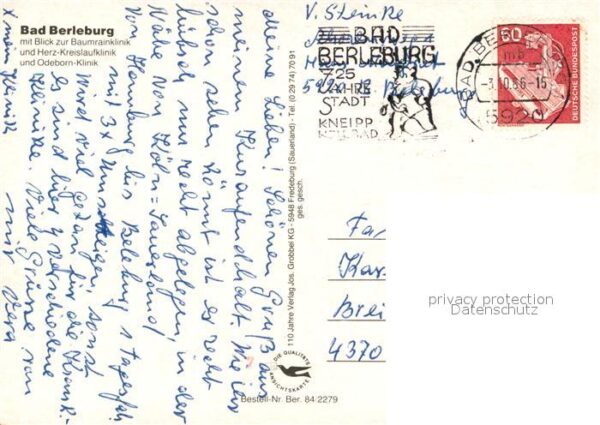 Bad Berleburg
mit Blick zur Baumrainklinik
und Herz-Kreislaufklinik
und Odeborn-Klinik
x mein Klinik
Meine Lieben! Schönen Gruß aus
meinem Kuraufenthalt. Wie ihr
schon sehen könnt ist es recht
hübsch, nur recht abgelegen, in der
Nähe von Köln = Sauerland
Vom Hamburg bis Berleburg 1 Tagesfahrt
mit 3x Umsteigen, sonst
wird viel getan für die Krank-
es sind hier 4 verschiedene
Kliniken. Viele Grüße von
mir Vera
110 Jahre Verlag Jos. Grobbel KG · 5948 Fredeburg (Sauerland) · Tel. (0 29 74) 70 91
ges. gesch.
DIE QUALITÄTS
ANSICHTSKARTE
Bestell-Nr. Ber. 84 2279
V. Steinke
592 Berleburg
BAD
BERLEBURG
725
JAHRE
STADT
KNEIPP
HEILBAD
BAD BE
mb
-3.10.86-15
5920
60
DEUTSCHE BUNDESPOST
Fa
Kar
Brei
4370
privacy protection
Datenschutz